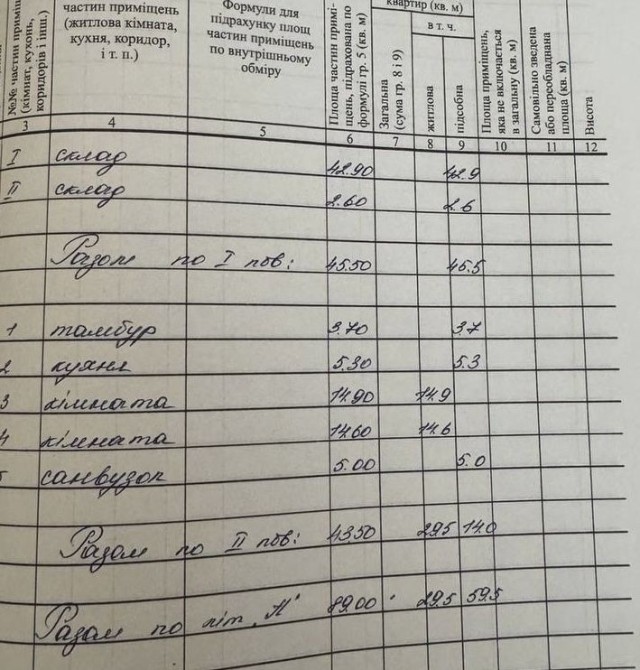 №№ частин приміщ
(кімнат, кухонь,
коридорів і інш.)
частин приміщень
(житлова кімната,
кухня, коридор,
і т. п.)
Формули для
підрахунку площ
частин приміщень
по внутрішньому
обміру
Площа частин примі-
щень, підрахована по
формулі гр. 5 (кв. м)
квартир (кв. м)
Загальна
(сума гр. 8 і 9)
в т. ч.
житлова
підсобна
Площа приміщень,
яка не включається
в загальну (кв. м)
Самовільно зведена
або переобладнана
площа (кв. м)
Висота
3 4 5 6 7 8 9 10 11 12
I склад 42.90 42.9
II склад 2.60 2.6
Разом по I пов: 45.50 45.5
1 тамбур 3.70 3.7
2 кухня 5.30 5.3
3 кімната 14.90 14.9
4 кімната 14.60 14.6
санвузол 5.00 5.0
Разом по II пов: 43.50 29.5 14.0
Разом по літ 89.00 29.5 59.5